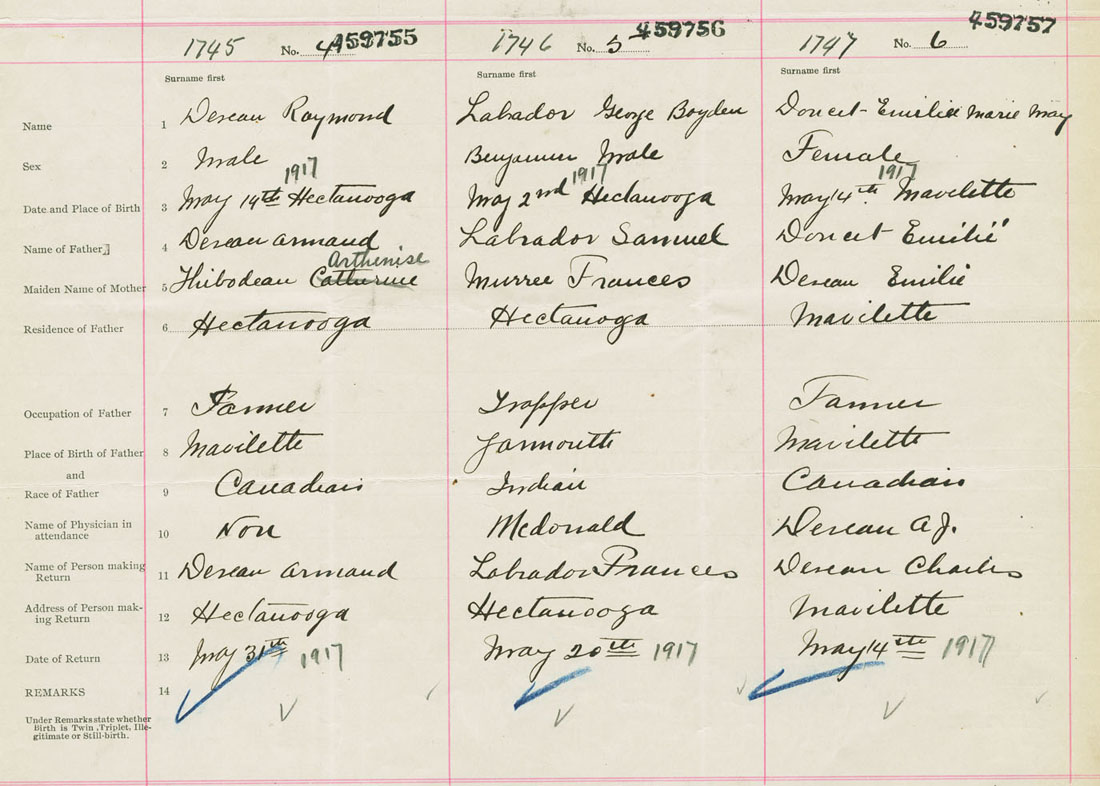 1745 No. 4 459755 1746 No. 5 459756 1747 No. 6 459757
Surname first Surname first Surname first
Name 1 Deveau Raymond Labrador George Boyden Doucet Emilie Marie May
Sex 2 Male Benjamin Male Female
1917 1917 1917
Date and Place of Birth 3 May 14th Hectanooga May 2nd Hectanooga May 14th Mavilette
Name of Father 4 Deveau Armand Labrador Samuel Doucet Emilié
Arthenise
Maiden Name of Mother 5 Thibodeau Catherine Murree Frances Deveau Emilie
Residence of Father 6 Hectanooga Hectanoga Mavilette
Occupation of Father 7 Farmer Trapper Farmer
Place of Birth of Father 8 Mavilette Yarmouth Mavilette
and
Race of Father 9 Canadian Indian Canadian
Name of Physician in
attendance 10 Non McDonald Deveau A J.
Name of Person making
Return 11 Deveau Armand Labrador Frances Deveau Charles
Address of Person mak-
ing Return 12 Hectanooga Hectanooga Mavilette
Date of Return 13 May 31th 1917 May 20th 1917 May 14th 1917
REMARKS 14
Under Remarks state whether
Birth is Twin, Triplet, Ille-
gitimate or Still-birth.